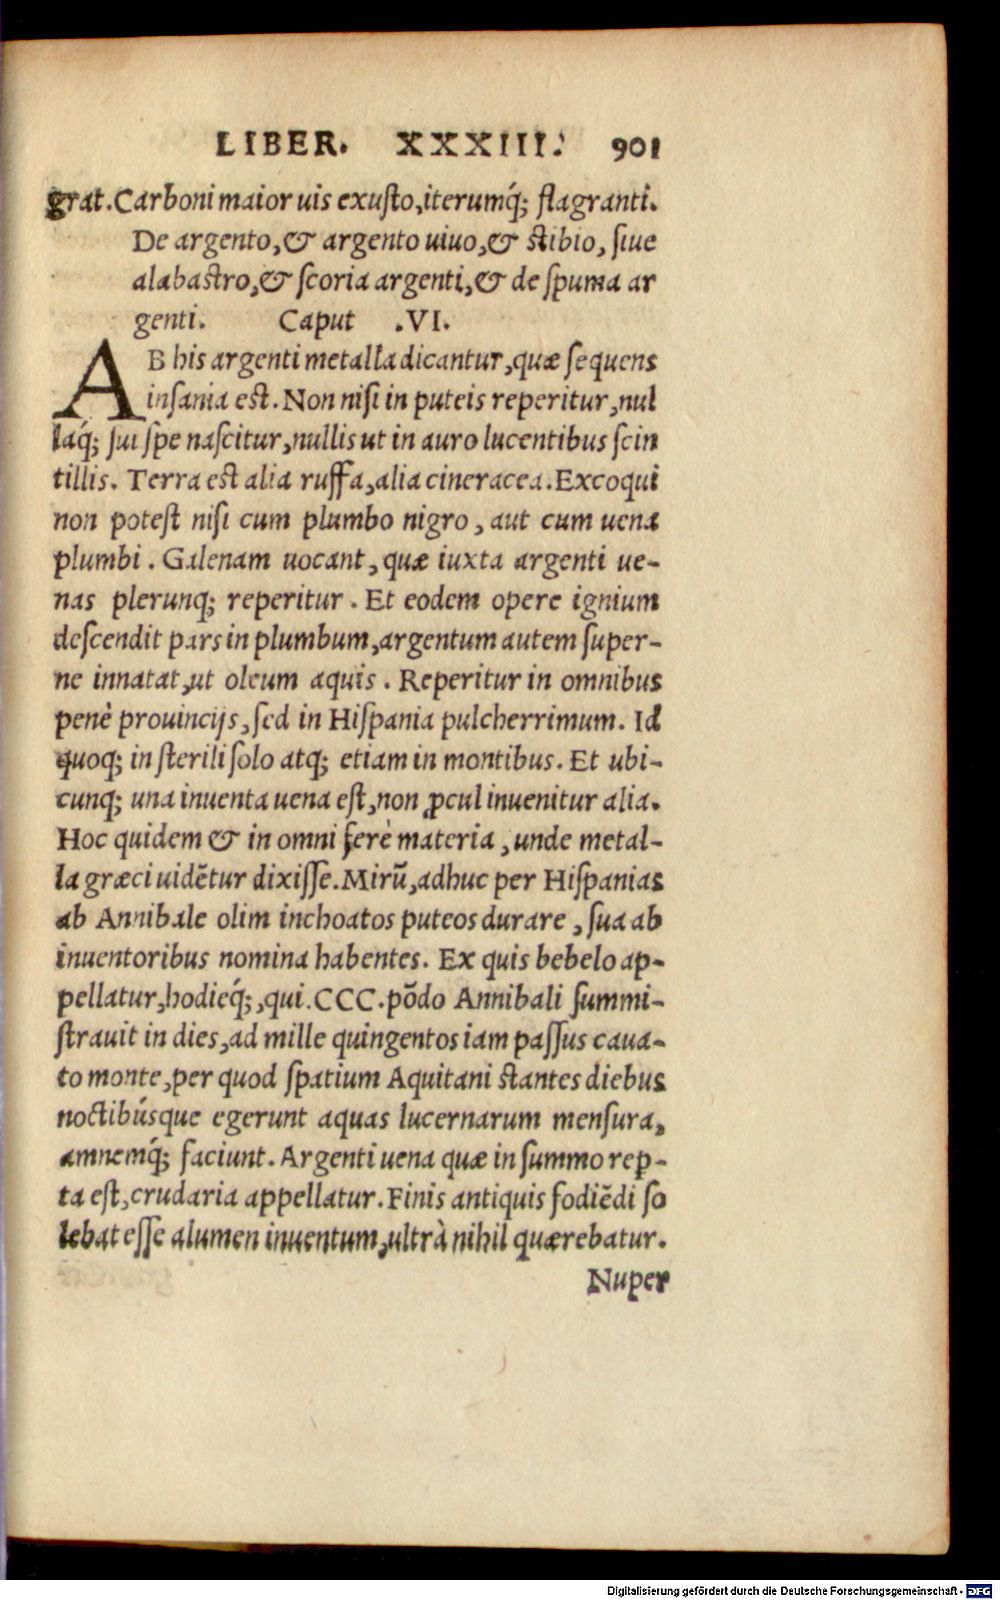 LIBER. XXXIII. 901
grat. Carboni maior uis exuſto, iterumq́; flagranti.
De argento, & argento uiuo, & ſtibio, ſiue
alabaſtro, & ſcoria argenti, & de ſpuma ar
genti. Caput .VI.
AB his argenti metalla dicantur, quæ ſequens
inſania est. Non niſi in puteis reperitur, nul
laq́; ſui ſpe naſcitur, nullis ut in auro lucentibus ſcin
tillis. Terra est alia ruffa, alia cineracea. Excoqui
non poteſt niſi cum plumbo nigro, aut cum uena
plumbi. Galenam uocant, quæ iuxta argenti ue-
nas plerunq; reperitur. Et eodem opere ignium
deſcendit pars in plumbum, argentum autem ſuper-
ne innatat, ut oleum aquis. Reperitur in omnibus
penè prouincijs, ſed in Hiſpania pulcherrimum. Id
quoq; in ſterili ſolo atq; etiam in montibus. Et ubi-
cunq; una inuenta uena eſt, non ꝓcul inuenitur alia.
Hoc quidem & in omni ferè materia, unde metal-
la græci uidẽtur dixiſſe. Mirũ, adhuc per Hiſpanias
ab Annibale olim inchoatos puteos durare, ſua ab
inuentoribus nomina habentes. Ex quis bebelo ap-
pellatur, hodieq́;, qui. CCC. põdo Annibali ſummi-
ſtrauit in dies, ad mille quingentos iam paſſus caua-
to monte, per quod ſpatium Aquitani ſtantes diebus
noctibúsque egerunt aquas lucernarum menſura,
amnemq́; faciunt. Argenti uena quæ in ſummo reꝑ-
ta eſt, crudaria appellatur. Finis antiquis fodiẽdi ſo
lebat eſſe alumen inuentum, ultrà nihil quærebatur.
Nuper
Digitalisierung gefördert durch die Deutsche Forschungsgemeinschaft - DFG